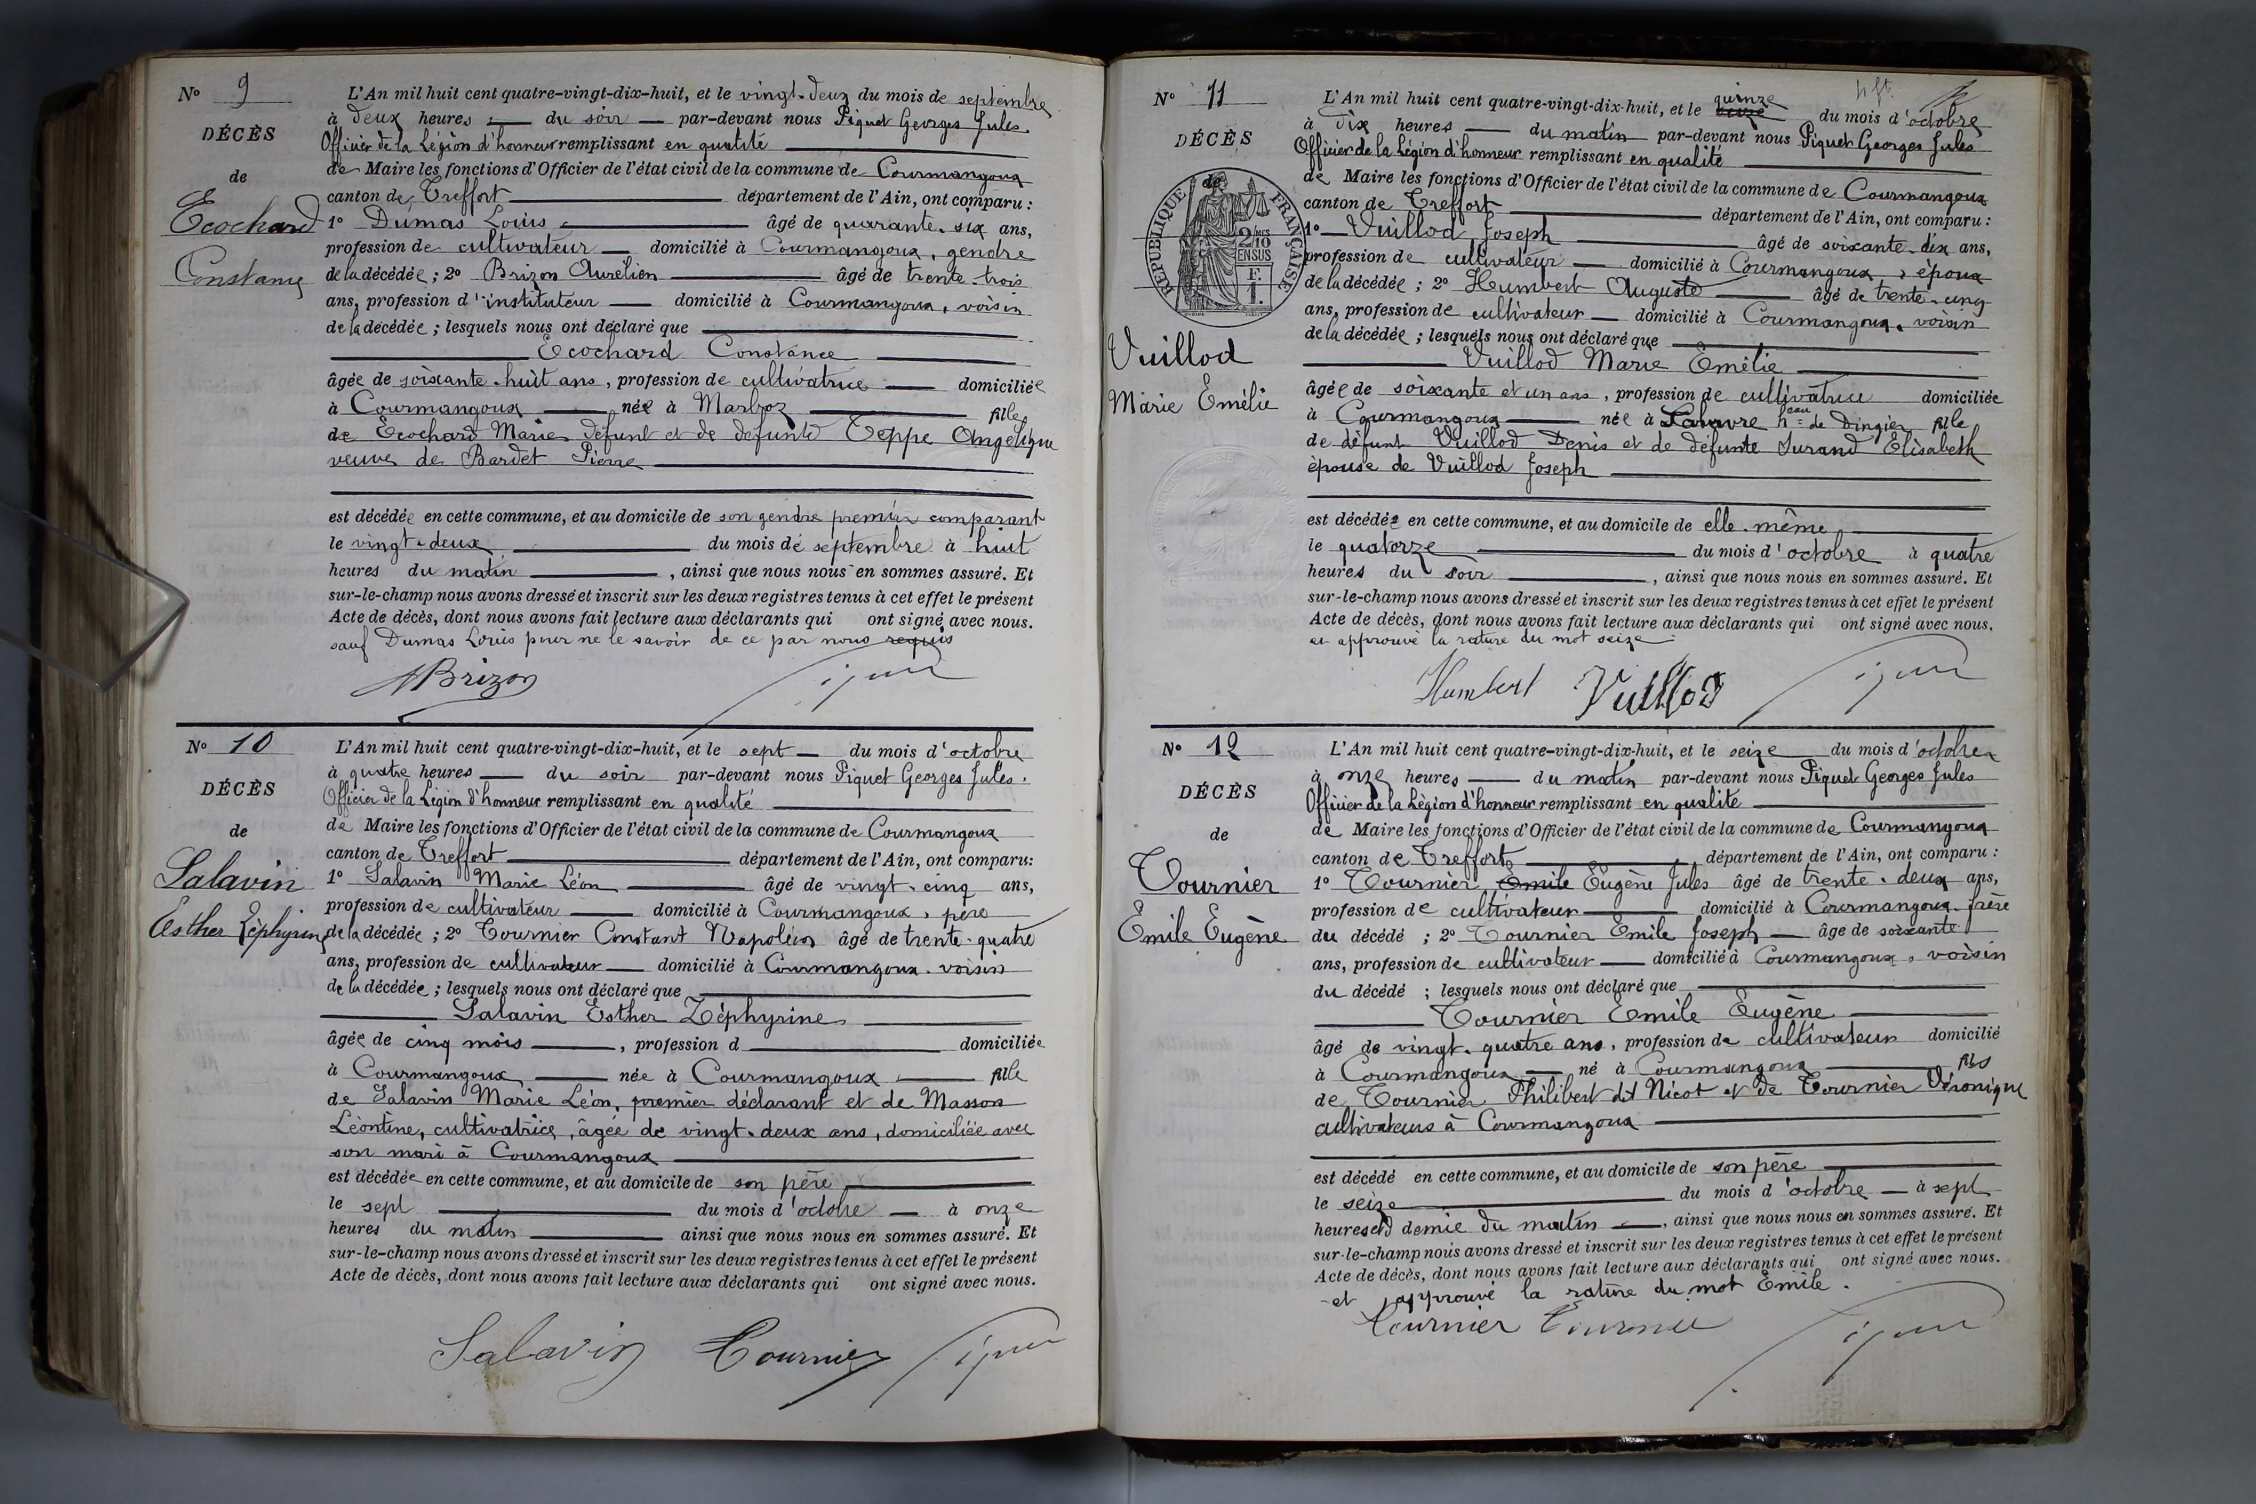 N° 9
DÉCÈS
de
Ecochard
Constance
L'An mil huit cent quatre-vingt-dix-huit, et le vingt-deux du mois de septembre
à deux heures du soir par-devant nous Piquet Georges Jules.
Officier de la Légion d'honneur remplissant en qualité
de Maire les fonctions d'Officier de l'état civil de la commune de Courmangoux
canton de Treffort département de l'Ain, ont comparu :
1° Dumas Louis âgé de quarante-six ans,
profession de cultivateur domicilié à Courmangoux, gendre
de la décédée ; 2° Brizon Aurélien âgé de trente-trois
ans, profession d'instituteur domicilié à Courmangoux, voisin
de la décédée ; lesquels nous ont déclaré que
Ecochard Constance
âgée de soixante-huit ans, profession de cultivatrice domiciliée
à Courmangoux née à Marboz fille
de Ecochard Marie défunt et de défunte Teppe Angélique
veuve de Bardet Pierre
est décédée en cette commune, et au domicile de son gendre premier comparant
le vingt-deux du mois de septembre à huit
heures du matin, ainsi que nous nous en sommes assuré. Et
sur-le-champ nous avons dressé et inscrit sur les deux registres tenus à cet effet le présent
Acte de décès, dont nous avons fait lecture aux déclarants qui ont signé avec nous.
sauf Dumas Louis pour ne le savoir de ce par nous requis
ABrizon
N° 10
DÉCÈS
de
Salavin
Esther Zéphyrine
L'An mil huit cent quatre-vingt-dix-huit, et le sept du mois d'octobre
à quatre heures du soir par-devant nous Piquet Georges Jules.
Officier de la Légion d'honneur remplissant en qualité
de Maire les fonctions d'Officier de l'état civil de la commune de Courmangoux
canton de Treffort département de l'Ain, ont comparu :
1° Salavin Marie Léon âgé de vingt-cinq ans,
profession de cultivateur domicilié à Courmangoux, père
de la décédée ; 2° Tournier Constant Napoléon âgé de trente-quatre
ans, profession de cultivateur domicilié à Courmangoux. voisin
de la décédée ; lesquels nous ont déclaré que
Salavin Esther Zéphyrine
âgée de cinq mois, profession d domiciliée
à Courmangoux née à Courmangoux fille
de Salavin Marie Léon, premier déclarant et de Masson
Léontine, cultivatrice, âgée de vingt-deux ans, domiciliée avec
son mari à Courmangoux
est décédée en cette commune, et au domicile de son père
le sept du mois d'octobre à onze
heures du matin ainsi que nous nous en sommes assuré. Et
sur-le-champ nous avons dressé et inscrit sur les deux registres tenus à cet effet le présent
Acte de décès, dont nous avons fait lecture aux déclarants qui ont signé avec nous.
Salavin Tournier
N° 11
DÉCÈS
de
RÉPUBLIQUE FRANÇAISE
2/10 EN SUS
Vuillod
Marie Emélie
L'An mil huit cent quatre-vingt-dix-huit, et le quinze du mois d'octobre
à dix heures du matin par-devant nous Piquet Georges Jules
Officier de la Légion d'honneur remplissant en qualité
de Maire les fonctions d'Officier de l'état civil de la commune de Courmangoux
canton de Treffort département de l'Ain, ont comparu :
1° Vuillod Joseph âgé de soixante-dix ans,
profession de cultivateur domicilié à Courmangoux, époux
de la décédée ; 2° Humbert Auguste âgé de trente-cinq
ans, profession de cultivateur domicilié à Courmangoux. voisin
de la décédée ; lesquels nous ont déclaré que
Vuillod Marie Emélie
âgée de soixante et un ans, profession de cultivatrice domiciliée
à Courmangoux née à heau de Dingier fille
de défunt Vuillod Denis et de défunte Jurand Elisabeth
épouse de Vuillod Joseph
est décédée en cette commune, et au domicile de elle-même
le quatorze du mois d'octobre à quatre
heures du soir, ainsi que nous nous en sommes assuré. Et
sur-le-champ nous avons dressé et inscrit sur les deux registres tenus à cet effet le présent
Acte de décès, dont nous avons fait lecture aux déclarants qui ont signé avec nous.
et approuvé la rature du mot seize
Humbert Vuillod
N° 12
DÉCÈS
de
Tournier
Emile Eugène
L'An mil huit cent quatre-vingt-dix-huit, et le seize du mois d'octobre
à onze heures du matin par-devant nous Piquet Georges Jules
Officier de la Légion d'honneur remplissant en qualité
de Maire les fonctions d'Officier de l'état civil de la commune de Courmangoux
canton de Treffort département de l'Ain, ont comparu :
1° Tournier Emile Eugène Jules âgé de trente-deux ans,
profession de cultivateur domicilié à Courmangoux. frère
du décédé ; 2° Tournier Emile Joseph âgé de soixante
ans, profession de cultivateur domicilié à Courmangoux, voisin
du décédé ; lesquels nous ont déclaré que
Tournier Emile Eugène
âgé de vingt-quatre ans, profession de cultivateur domicilié
à Courmangoux né à Courmangoux fils
de Tournier Philibert dit Nicot et de Tournier Véronique
cultivateurs à Courmangoux
est décédé en cette commune, et au domicile de son père
le seize du mois d'octobre à sept
heures et demie du matin, ainsi que nous nous en sommes assuré. Et
sur-le-champ nous avons dressé et inscrit sur les deux registres tenus à cet effet le présent
Acte de décès, dont nous avons fait lecture aux déclarants qui ont signé avec nous.
et approuvé la rature du mot Emile.
Tournier Tournier